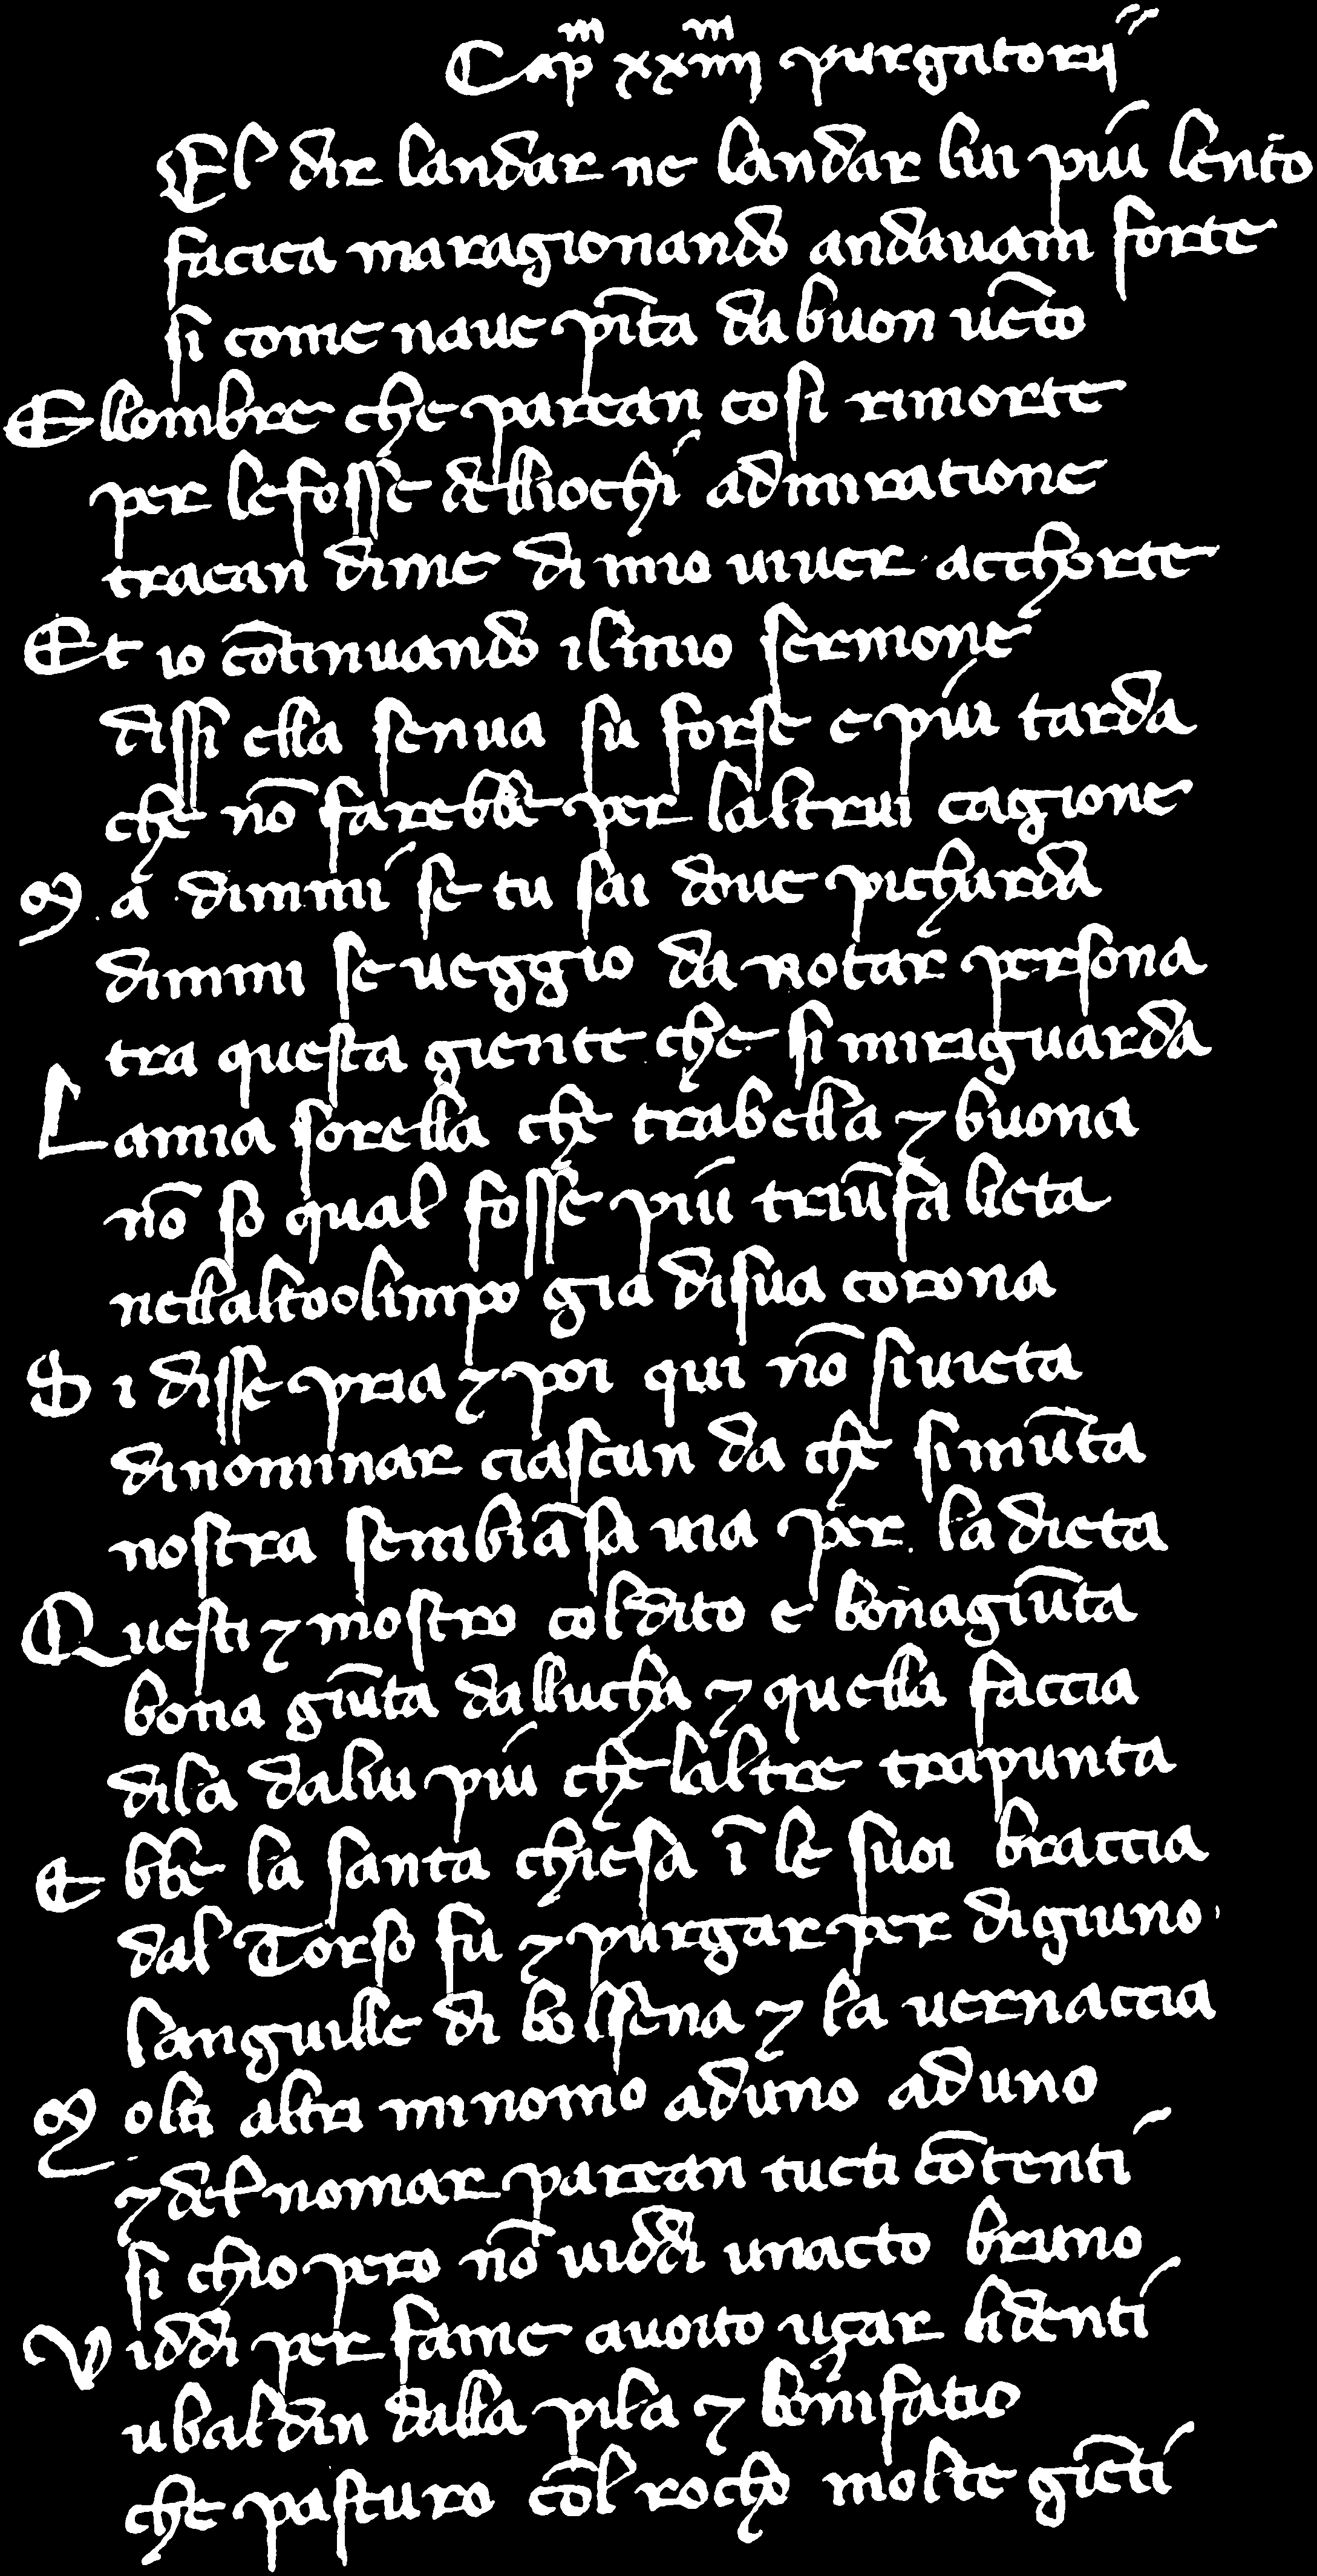 Cap̄m xxiiijm purgatorij
El dir landar ne landar lui piu lento
facica maragionando andauam forte
si come naue pīta da buon uēto
Ellombre che parean cosi rimorte
per le fosse delliochi admiratione
traean dime di mio uiuer acchorte
Et io cōtinuando ilmio sermone
dissi ella senua su forse e piu tarda
che nō farebbe per laltrui cagione
Ma dimmi se tu sai doue picharda
dimmi se ueggio da notar persona
tra questa giente che si miriguarda
Lamia sorella che trabella ⁊ buona
nō so qual fosse piu triūfa lieta
nellaltoolimpo gia disua corona
Si disse pria ⁊ poi qui nō siuieta
dinominar ciascun da che simūta
nostra sembiāsa uia per la dieta
Questi ⁊ mostro coldito e bonagiūta
bona giūta dallucha ⁊ quella faccia
dila dalui piu che laltre trapunta
Ebbe la santa chiesa ī le suoi braccia
dal Torso fu ⁊ purgar per digiuno
languille di bolsena ⁊ la uernaccia
Molti altri minomo aduno aduno
⁊ del nomar parean tucti cōtenti
si chio pero nō uiddi unacto bruno
Viddi per fame auoito uṣar lidenti
ubaldin dalla pila ⁊ bonifatio
che pasturo cōl rocho molte giēti